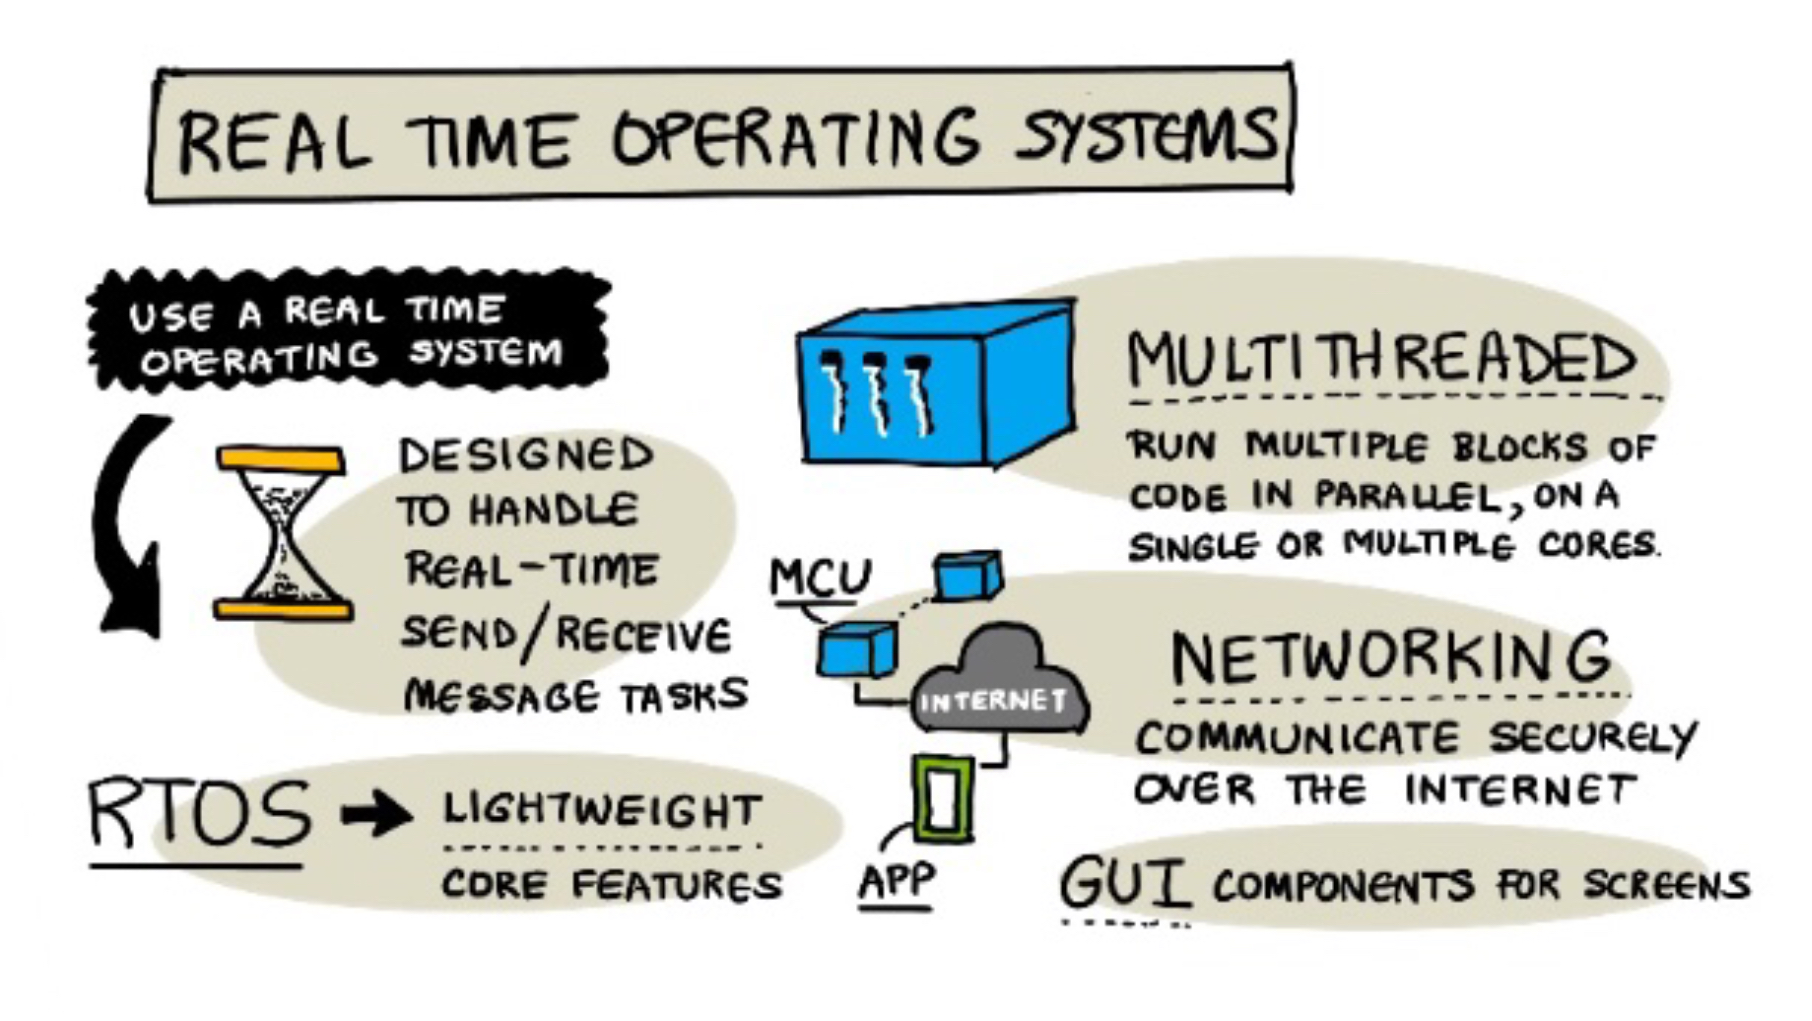 REAL TIME OPERATING SYSTEMS
USE A REAL TIME
OPERATING SYSTEM
DESIGNED
TO HANDLE
REAL-TIME
SEND/RECEIVE
MESSAGE TASKS
RTOS
LIGHTWEIGHT
CORE FEATURES
MULTITHREADED
RUN MULTIPLE BLOCKS OF
CODE IN PARALLEL, ON A
SINGLE OR MULTIPLE CORES.
MCU
INTERNET
APP
NETWORKING
COMMUNICATE SECURELY
OVER THE INTERNET
GUI COMPONENTS FOR SCREENS